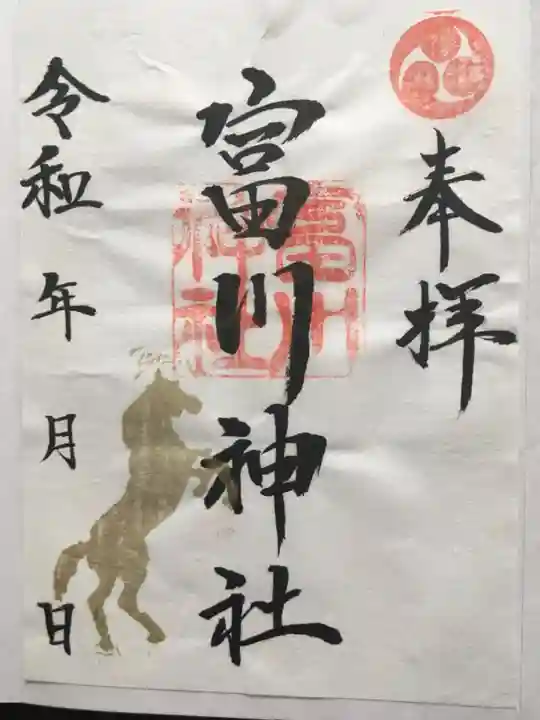 奉拝
富川神社
富川神社
令和 年 月 日